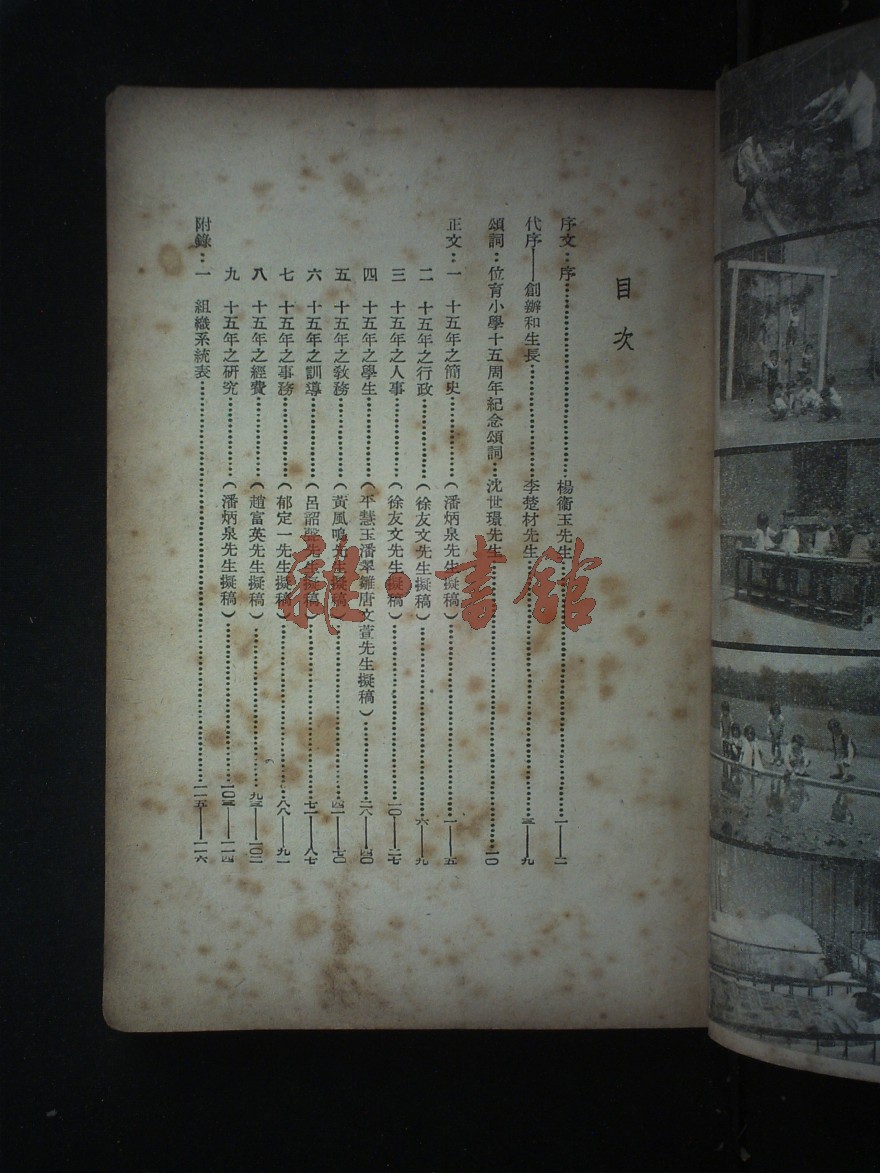 目次
序文：序……………楊衞玉先生……………一——二
代序——創辦和生長……………李楚材先生……………三——九
頌詞：位育小學十五周年紀念頌詞…沈世璟先生……………一〇
正文：一　十五年之簡史……………（潘炳泉先生擬稿）……………一——五
二　十五年之行政……………（徐友文先生擬稿）……………六——九
三　十五年之人事……………（徐友文先生擬稿）……………一〇——二七
四　十五年之學生……………（平慧玉潘翠雛唐文萱先生擬稿）……………二八——四〇
五　十五年之敎務……………（黃風鳴先生擬稿）……………四一——七〇
六　十五年之訓導……………（呂韶先生擬稿）……………七一——八七
七　十五年之事務……………（郁定一先生擬稿）……………八八——九一
八　十五年之經費……………（趙富英先生擬稿）……………九二——一〇二
九　十五年之研究……………（潘炳泉先生擬稿）……………一〇三——一一四
附錄：一　組織系統表……………一一五——一一六
雜·書館